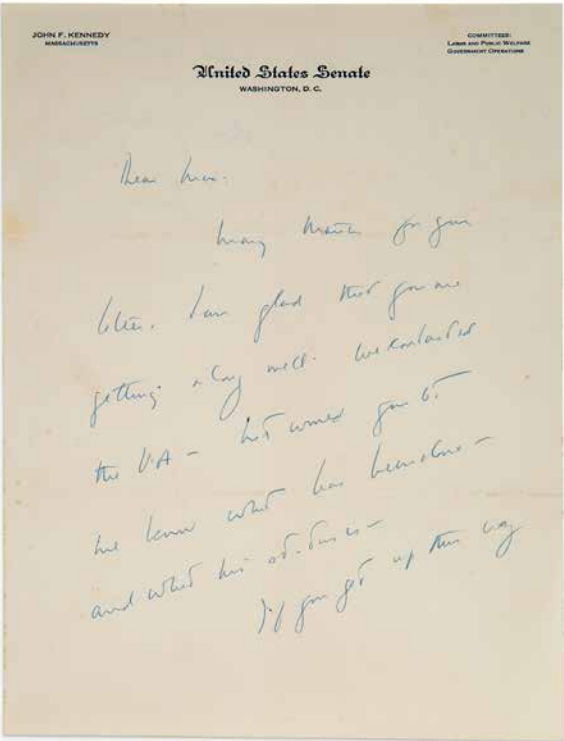 JOHN F. KENNEDY
MASSACHUSETTS
COMMITTEES:
LABOR AND PUBLIC WELFARE
GOVERNMENT OPERATIONS
United States Senate
WASHINGTON, D. C.
Dear
Many thanks for your
letter. I am glad that you are
getting along well. We contacted
the V.A – but would you let
me know what has been done –
and what his
If you get up this way